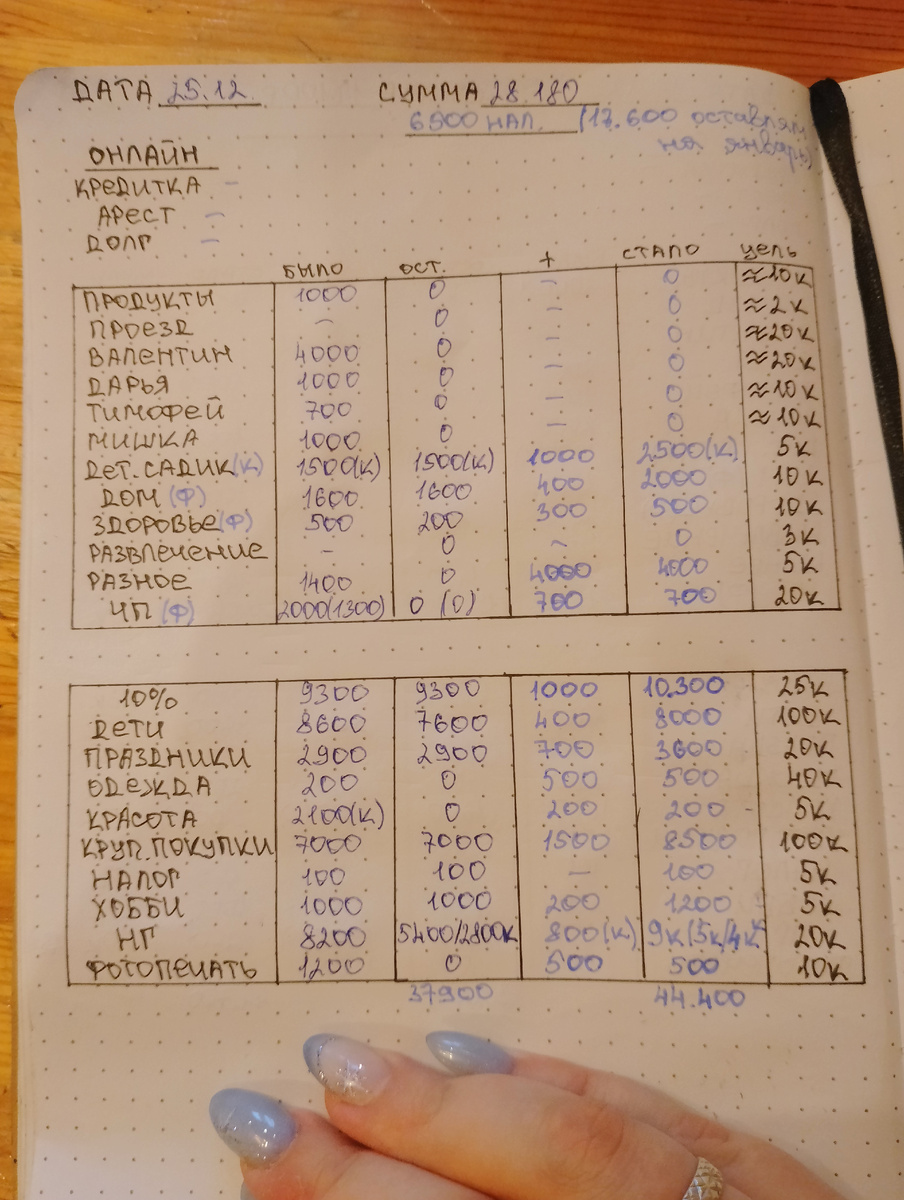 ДАТА 25.12 СУММА 28.180
6900 НАЛ. (17.600 оставляем
на январь)
ОНЛАЙН
КРЕДИТКА –
АРЕСТ –
ДОЛГ –
БЫЛО ОСТ. + СТАЛО ЦЕЛЬ
ПРОДУКТЫ 1000 0 – 0 ≈10к
ПРОЕЗД – 0 – 0 ≈2к
ВАЛЕНТИН 4000 0 – 0 ≈20к
ДАРЬЯ 1000 0 – 0 ≈20к
ТИМОФЕЙ 700 0 – 0 ≈10к
МИШКА 1000 0 – 0 ≈10к
ДЕТ.САДИК(К) 1500(К) 1500(К) 1000 2500(К) 5к
ДОМ (Ф) 1600 1600 400 2000 10к
ЗДОРОВЬЕ(Ф) 500 200 300 500 10к
РАЗВЛЕЧЕНИЕ – 0 – 0 3к
РАЗНОЕ 1400 0 4000 4000 5к
ЧП (Ф) 2000(1300) 0 (0) 700 700 20к
10% 9300 9300 1000 10.300 25к
ДЕТИ 8600 7600 400 8000 100к
ПРАЗДНИКИ 2900 2900 700 3600 20к
ОДЕЖДА 200 0 500 500 40к
КРАСОТА 2100(К) 0 200 200 5к
КРУП.ПОКУПКИ 7000 7000 1500 8500 100к
НАЛОГ 100 100 – 100 5к
ХОББИ 1000 1000 200 1200 5к
НГ 8200 5400/2800к 800(К) 9к(5к/4к 20к
ФОТОПЕЧАТЬ 1200 0 500 500 10к
37900 44.400